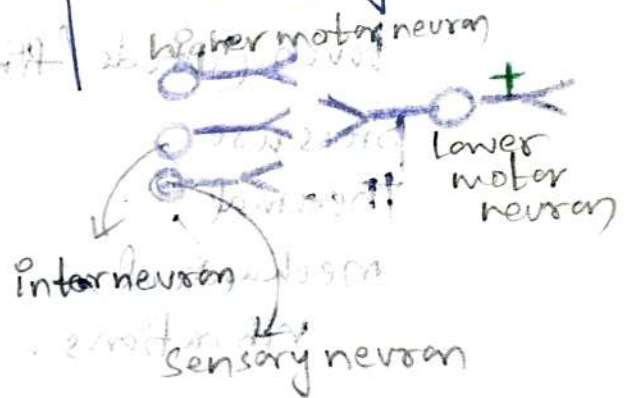 higher motor nevron
+
Lower
motor
nevron
internevron
sensory nevron